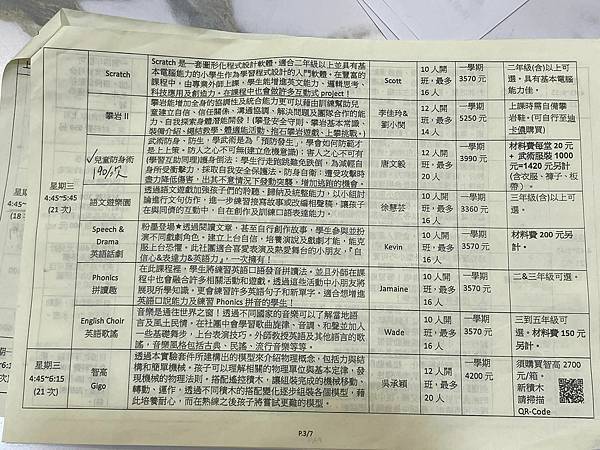 Scratch
Scratch 是一套圖形化程式設計軟體,適合二年級以上並具有基
本電腦能力的小學生作為學習程式設計的入門軟體。在豐富的
課程中,由專業外師上課,學生能增進英文能力、邏輯思考、
科技應用及創造力。在課程中也會做許多互動式 project!
Scott
10 人開
班,最多
16 人
一學期
3570 元
二年級(含)以上可
選。具有基本電腦
能力佳。
攀岩 II
攀岩能增加全身的協調性及統合能力更可以藉由訓練幫助兒
童建立自信、信任關係、溝通協調、解決問題及團隊合作的能
力、自我探索身體潛能開發!(攀登安全守則、攀岩基本常識、
裝備介紹、繩結教學、體適能活動、抱石攀岩遊戲、上攀挑戰。)
李佳玲&
劉小閔
12 人開
班,最多
14 人
一學期
5250 元
上課時需自備攀
岩鞋。(可自行至迪
卡儂購買)
星期三
4:45~5:45
(21 次)
兒童防身術
190/次
武術防身、防生,學武術是為「預防發生」,學會如何防範才
是上上策。防人之心不可無(建立危機意識);害人之心不可有
(學習互助同理)護身倒法:學生行走跑跳難免跌倒,為減輕自
身所受衝擊力,採取自我安全保護法。防身自衛:遭受攻擊時
盡力降低傷害,出其不意情況下發動突襲,增加逃跑的機會。
唐文毅
12 人開
班,最多
20 人
一學期
3990 元
材料費每堂 20 元
+ 武術服裝 1000
元=1420 元另計
(含衣服、褲子、板
帶)。
語文遊樂園
透過語文遊戲加強孩子們的聆聽、歸納及統整能力,以小組討
論進行文句仿作,進一步練習接寫故事或改編相聲稿,讓孩子
在與同儕的互動中,自在創作及訓練口語表達能力。
徐慧芸
10 人開
班,最多
16 人
一學期
3360 元
三年級(含)以上可
選。
Speech &
Drama
英語話劇
粉墨登場★透過閱讀文章,甚至自行創作故事,學生會參與並扮
演不同戲劇角色。建立上台自信,培養演說及戲劇才能,能克
服上台恐懼。此社團適合喜愛表演及熱愛舞台的小朋友,『自
信心&表達力&英語力』,一次擁有!
Kevin
10 人開
班,最多
16 人
一學期
3570 元
材料費 200 元另
計。
Phonics
拼讀趣
在此課程裡,學生將練習英語口語發音拼讀法。並且外師在課
程中也會融合許多相關活動和遊戲。透過這些活動中小朋友將
展現所學知識,更會練習許多英語句子和新單字。適合想增進
英語口說能力及練習 Phonics 拼音的學生!
Jamaine
10 人開
班,最多
16 人
一學期
3570 元
二&三年級可選。
English Choir
英語歌謠
音樂是通往世界之窗!透過不同國家的音樂可以了解當地語
言及風土民情。在社團中會學習歌曲旋律、音調、和聲並加入
一些基礎舞步,上台表演技巧。外師教授英語及其他語言的歌
謠,音樂風格包括古典、民謠、流行音樂等等。
Wade
10 人開
班,最多
16 人
一學期
3570 元
三到五年級可
選。材料費 150 元
另計。
星期三
4:45~6:15
(21 次)
智高
Gigo
透過本實驗套件所建構出的模型來介紹物理概念,包括力與結
構和簡單機械。孩子可以理解相關的物理單位與基本定律,發
現機械的物理法則。搭配遙控積木,讓組裝完成的機械移動、
轉動、運作。透過不同積木的搭配變化逐步組裝各個模型,藉
此培養耐心,而在熟練之後孩子將嘗試更難的模型。
吳承穎
12 人開
班,最多
20 人
一學期
4200 元
須購買智高 2700
元/箱。
新積木
請掃描
QR-Code
P.3/7